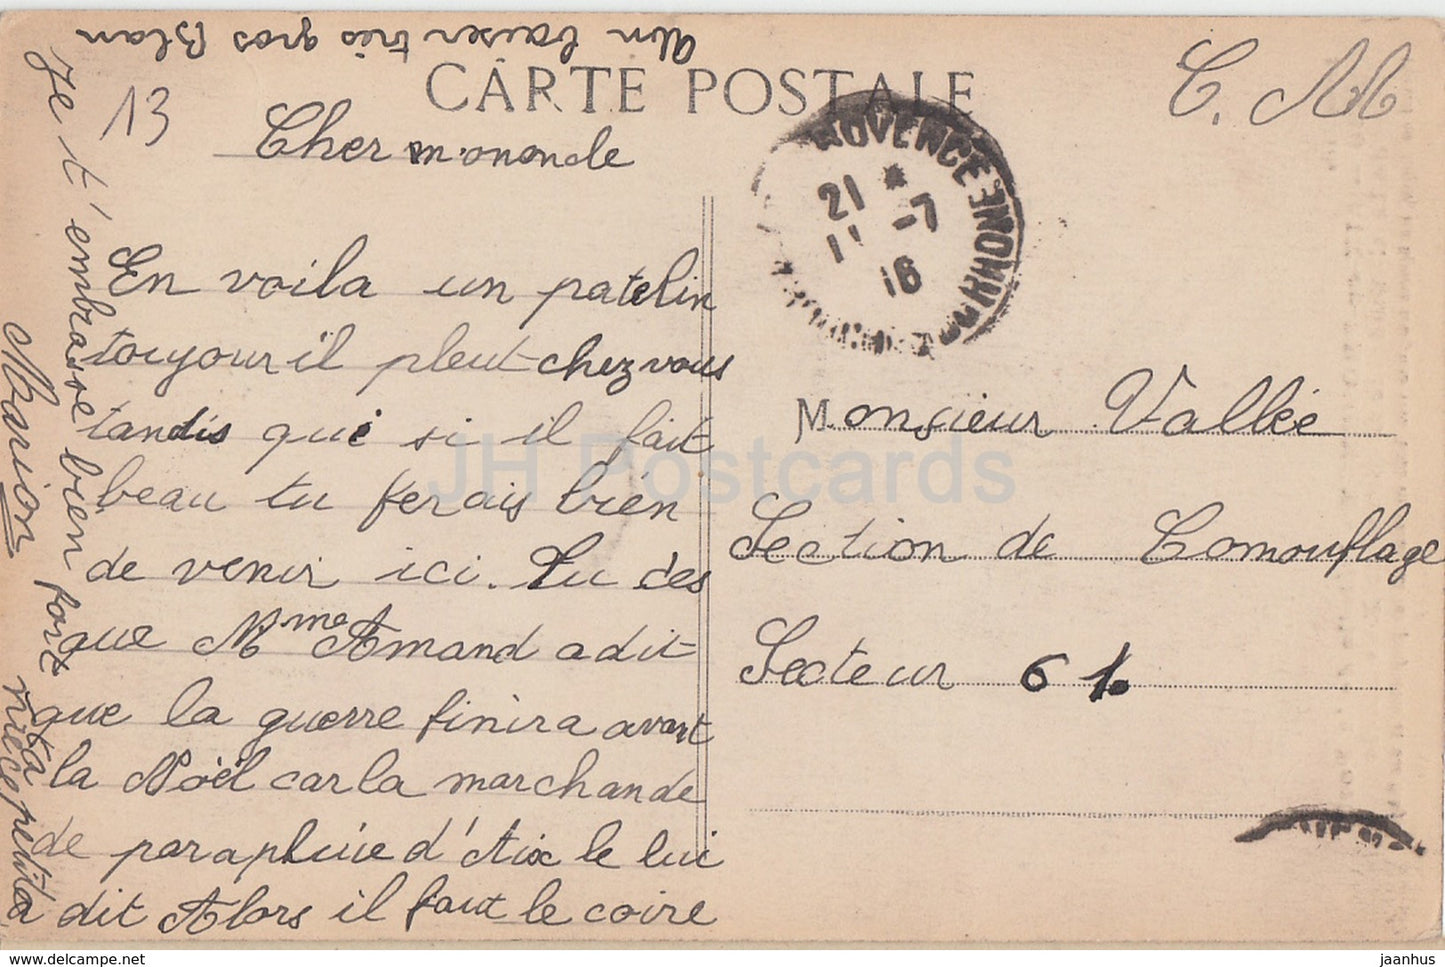 CARTE POSTALE
13
C. M
Cher mononcle
En voila un patelin
toujour il pleut chez vous
tandis que si il fait
beau tu ferais bien
de venir ici. Tu ces
que Mme Amand a dit
que la guerre finira avant
la Nöel car la marchande
de parapluie d'Aix le lui
dit Alors il faut le coire
Je t'embrasse bien fort
ta niece petite
Marion
Un baiser très gros Blan
PROVENCE
21 *
11 -7
16
B. DU RHONE
Monsieur Vallée
Section de Comouflage
Secteur 61.
JH Postcards
delcampe.net
jaanhus